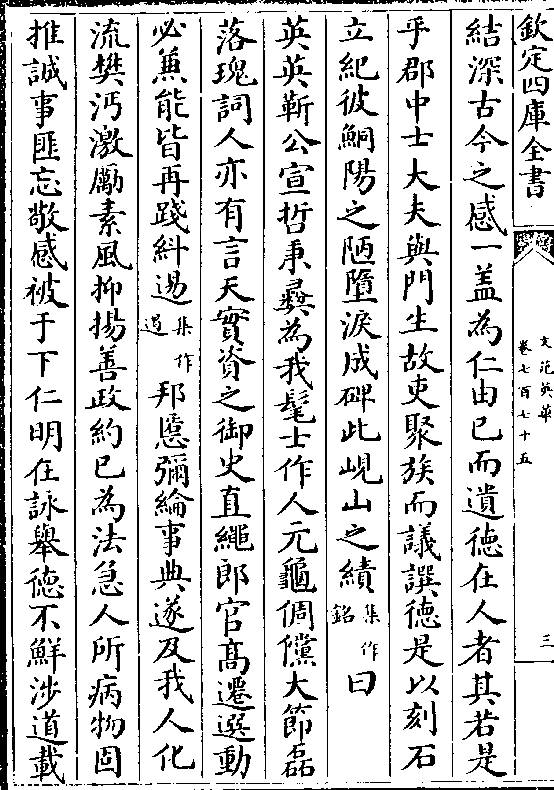 欽定四庫全書
文苑英華
卷七百七十五
三
結深古今之感一盖為仁由已而遺德在人者其若是
乎郡中士大夫與門生故吏聚族而議譔徳是以刻石
立紀彼鮦陽之陋墮淚成碑此峴山之績集作銘曰
英英靳公宣哲秉彞為我髦士作人元龜倜儻大節磊
落瑰詞人亦有言天實資之御史直繩郎官髙遷選動
必兼能皆再踐糾逷集作過邦慝彌綸事典遂及我人化
流樊沔激厲素風抑揚善政約已為法急人所病物固
推誠事匪忘敬感被于下仁明在詠舉徳不鮮涉道載